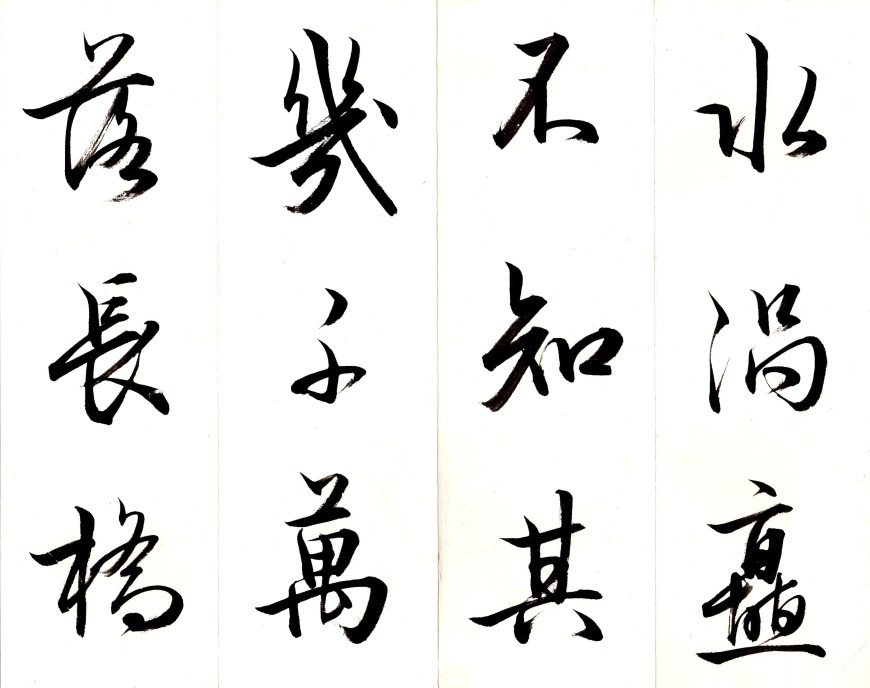 水渦矗
不知其
幾千萬
落長橋